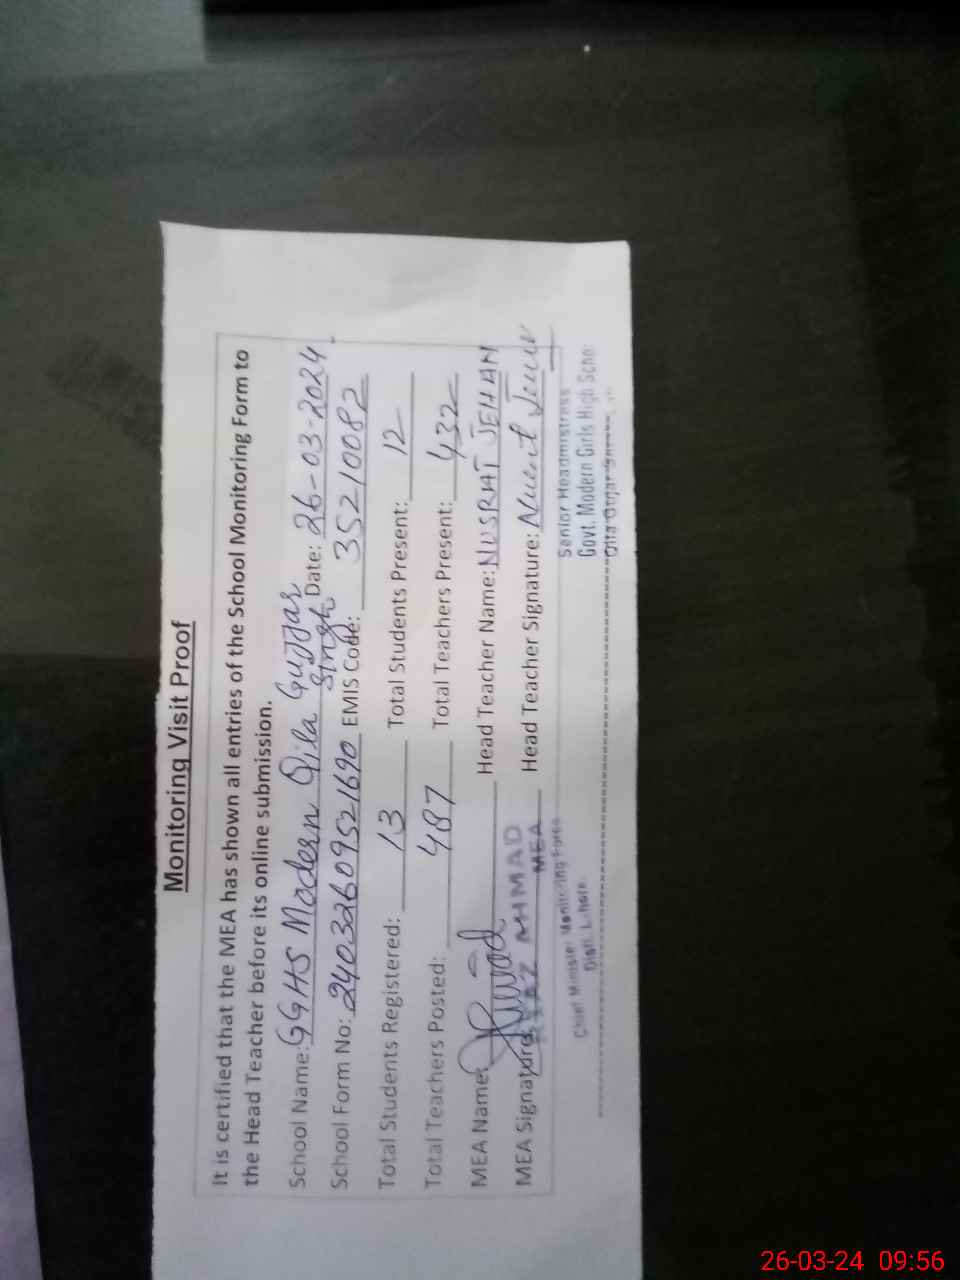 Monitoring Visit Proof
It is certified that the MEA has shown all entries of the School Monitoring Form to
the Head Teacher before its online submission.
School Name: GGHS Modern Qila Gujjar Singh Date: 26-03-2024
School Form No: 24032609521690 EMIS Code: 35210082
Total Students Registered: 13 Total Students Present: 12
Total Teachers Posted: 487 Total Teachers Present: 432
MEA Name: Head Teacher Name: NUSRAT JEHAN
MEA Signature: AHMAD Head Teacher Signature:
MEA
Chief Minister Monitoring Force
Distt. Lahore.
Senior Headmistress
Govt. Modern Girls High Scho
Qila Gujjar
26-03-24 09:56